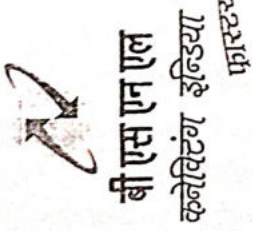 बी एस एन एल
कनेक्टिंग इन्डिया